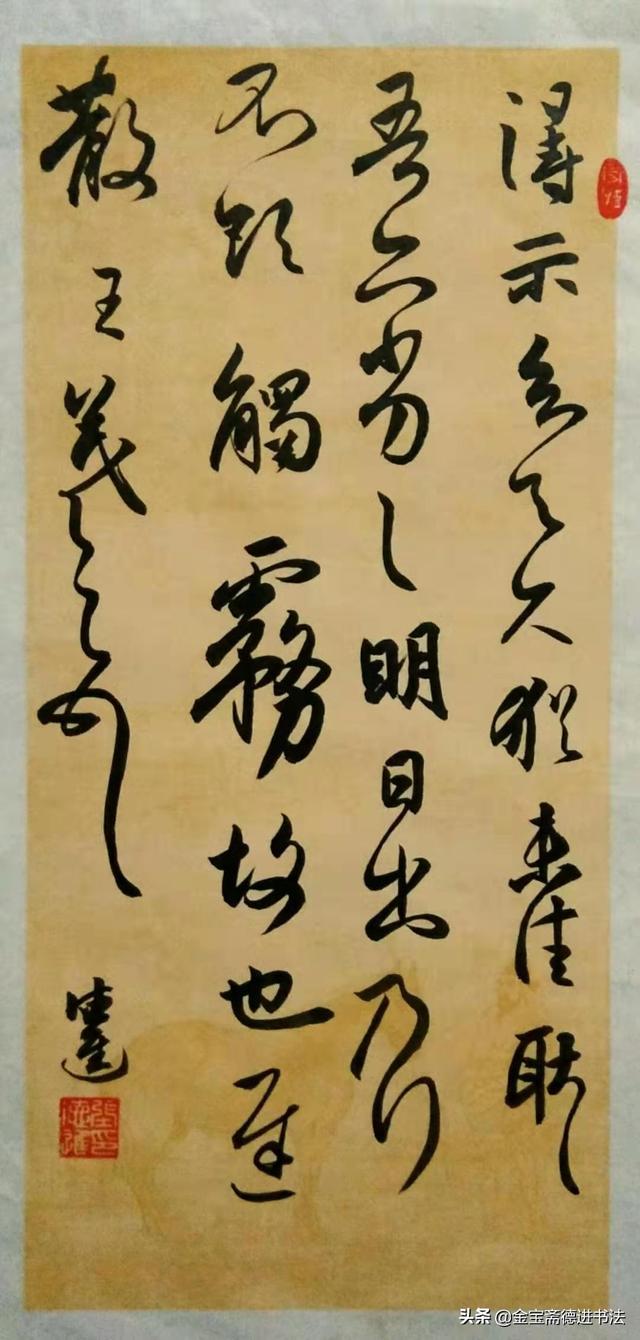 得示知足下猶未佳耿〻
吾亦劣〻明日出乃行
不欲觸霧故也遲
散 王羲之頓首
德進
头条 @金宝斋德进书法